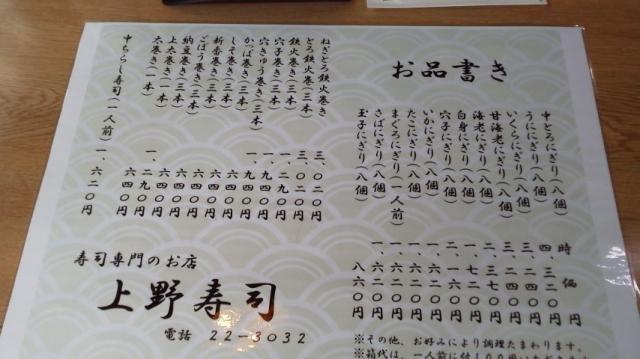 お品書き
中とろにぎり(八個) 時価
うににぎり(八個) 四、三二〇円
いくらにぎり(八個) 三、二四〇円
甘海老にぎり(八個) 二、三七〇円
海老にぎり(八個) 一、七二〇円
白身にぎり(八個) 二、一六〇円
穴子にぎり(八個) 一、六二〇円
いかにぎり(八個) 一、六二〇円
たこにぎり(八個) 一、六二〇円
まぐろにぎり(一人前)
さばにぎり(八個)
玉子にぎり(八個) 八六〇円
※その他、お好みにより調理たまわります。
※箱代は、一人前に付
ねぎとろ鉄火巻き 三、〇二〇円
とろ鉄火巻き(三本) 三、〇二〇円
鉄火巻き(三本) 一、二九〇円
穴子巻き(三本) 一、九四〇円
穴きゅう巻き(三本) 一、九四〇円
かっぱ巻き(三本) 六四〇円
しそ巻き(三本) 六四〇円
新香巻き(三本) 六四〇円
ごぼう巻き(三本) 六四〇円
納豆巻き(三本) 六四〇円
上太巻き(一本) 一、二九〇円
太巻き(一本) 六四〇円
中ちらし寿司(一人前) 一、六二〇円
寿司専門のお店
上野寿司
電話 22-3032